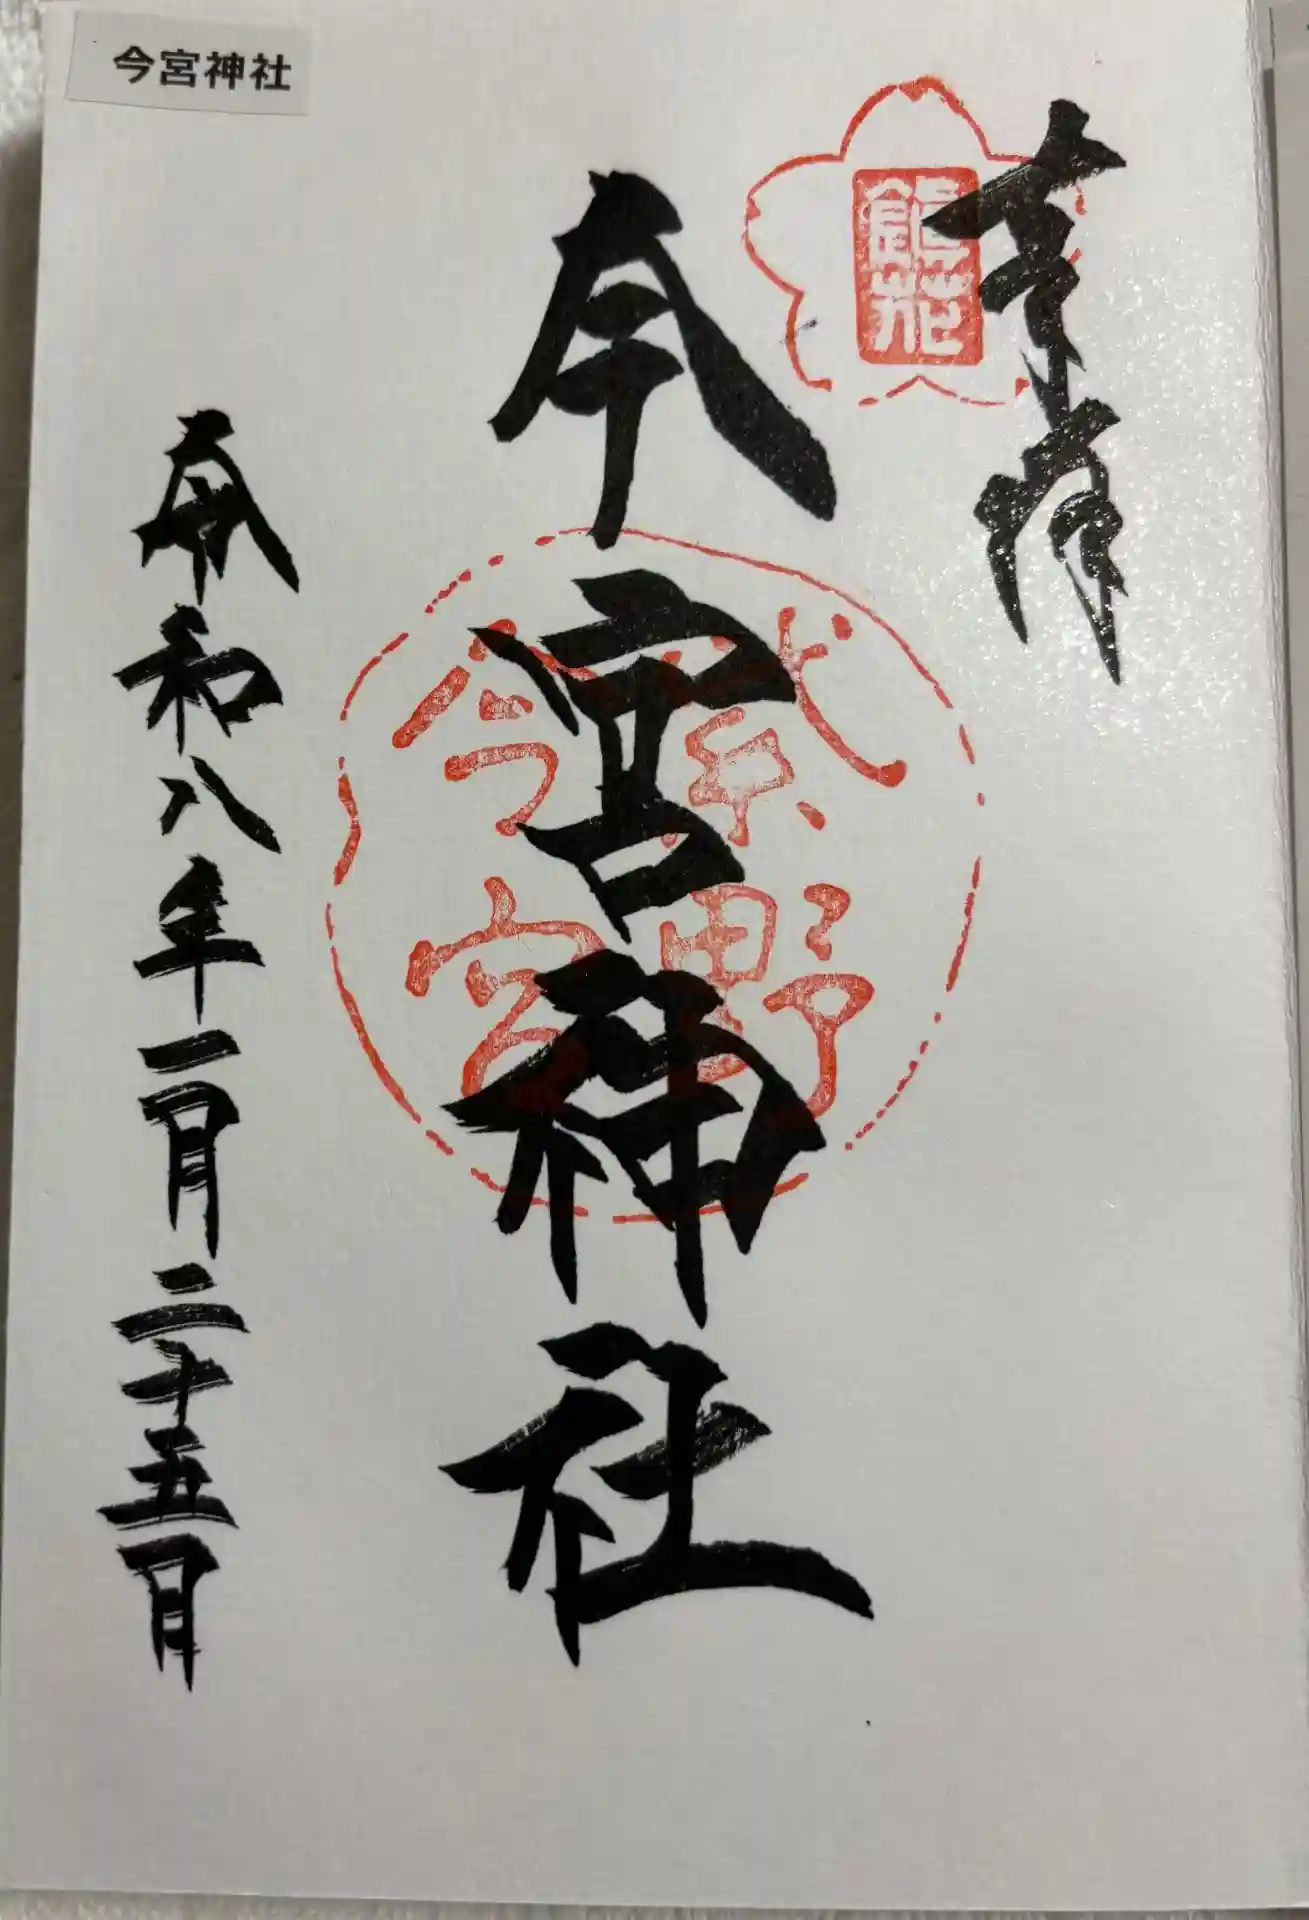 今宮神社
奉拝
龍花
今宮神社
紫野
今宮
令和八年一月二十五日